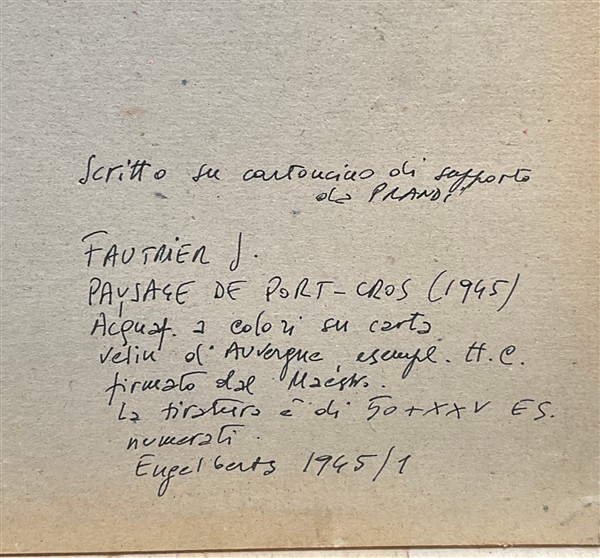 Scritto su cartoncino di supporto
da PRANDI
FAUTRIER J.
PAYSAGE DE PORT-CROS (1945)
Acquaf. a colori su carta
velin d'Auvergne, esempl. H.C.
firmato dal Maestro.
La tiratura è di 50+XXV ES.
numerati.
Engelberts 1945/1